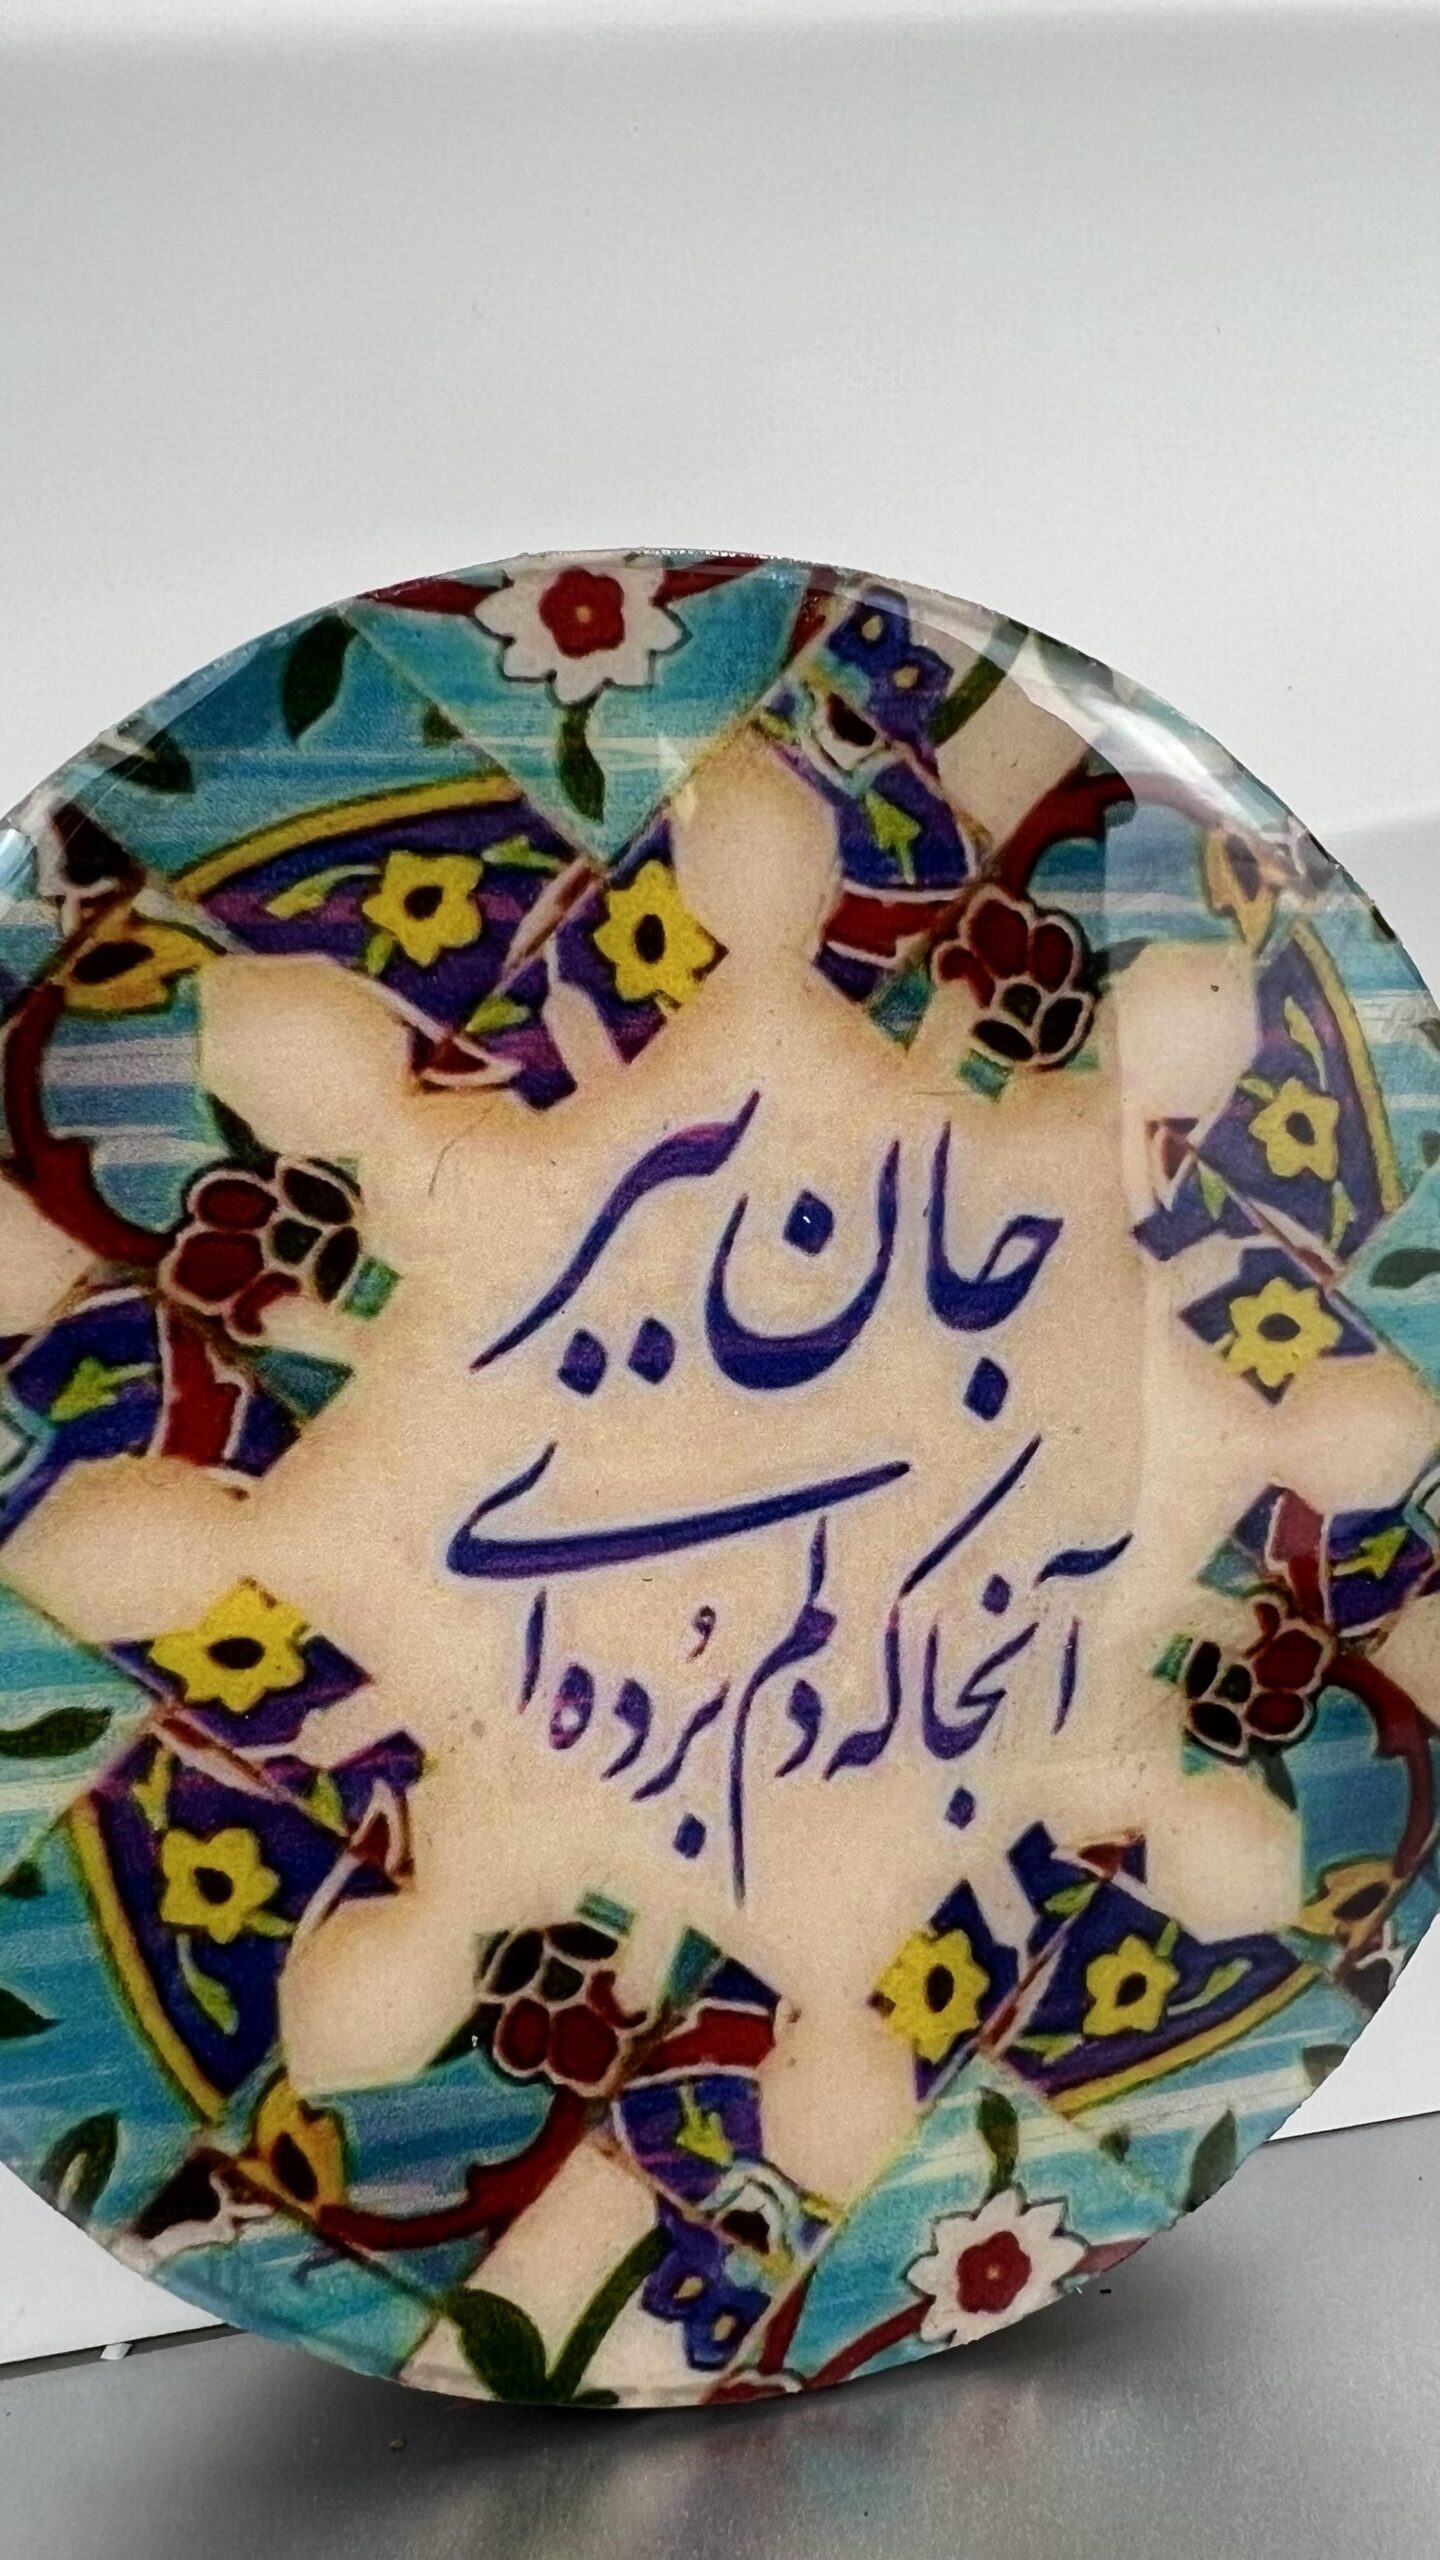 جان ببر
آنجا که دلم بُرده ای